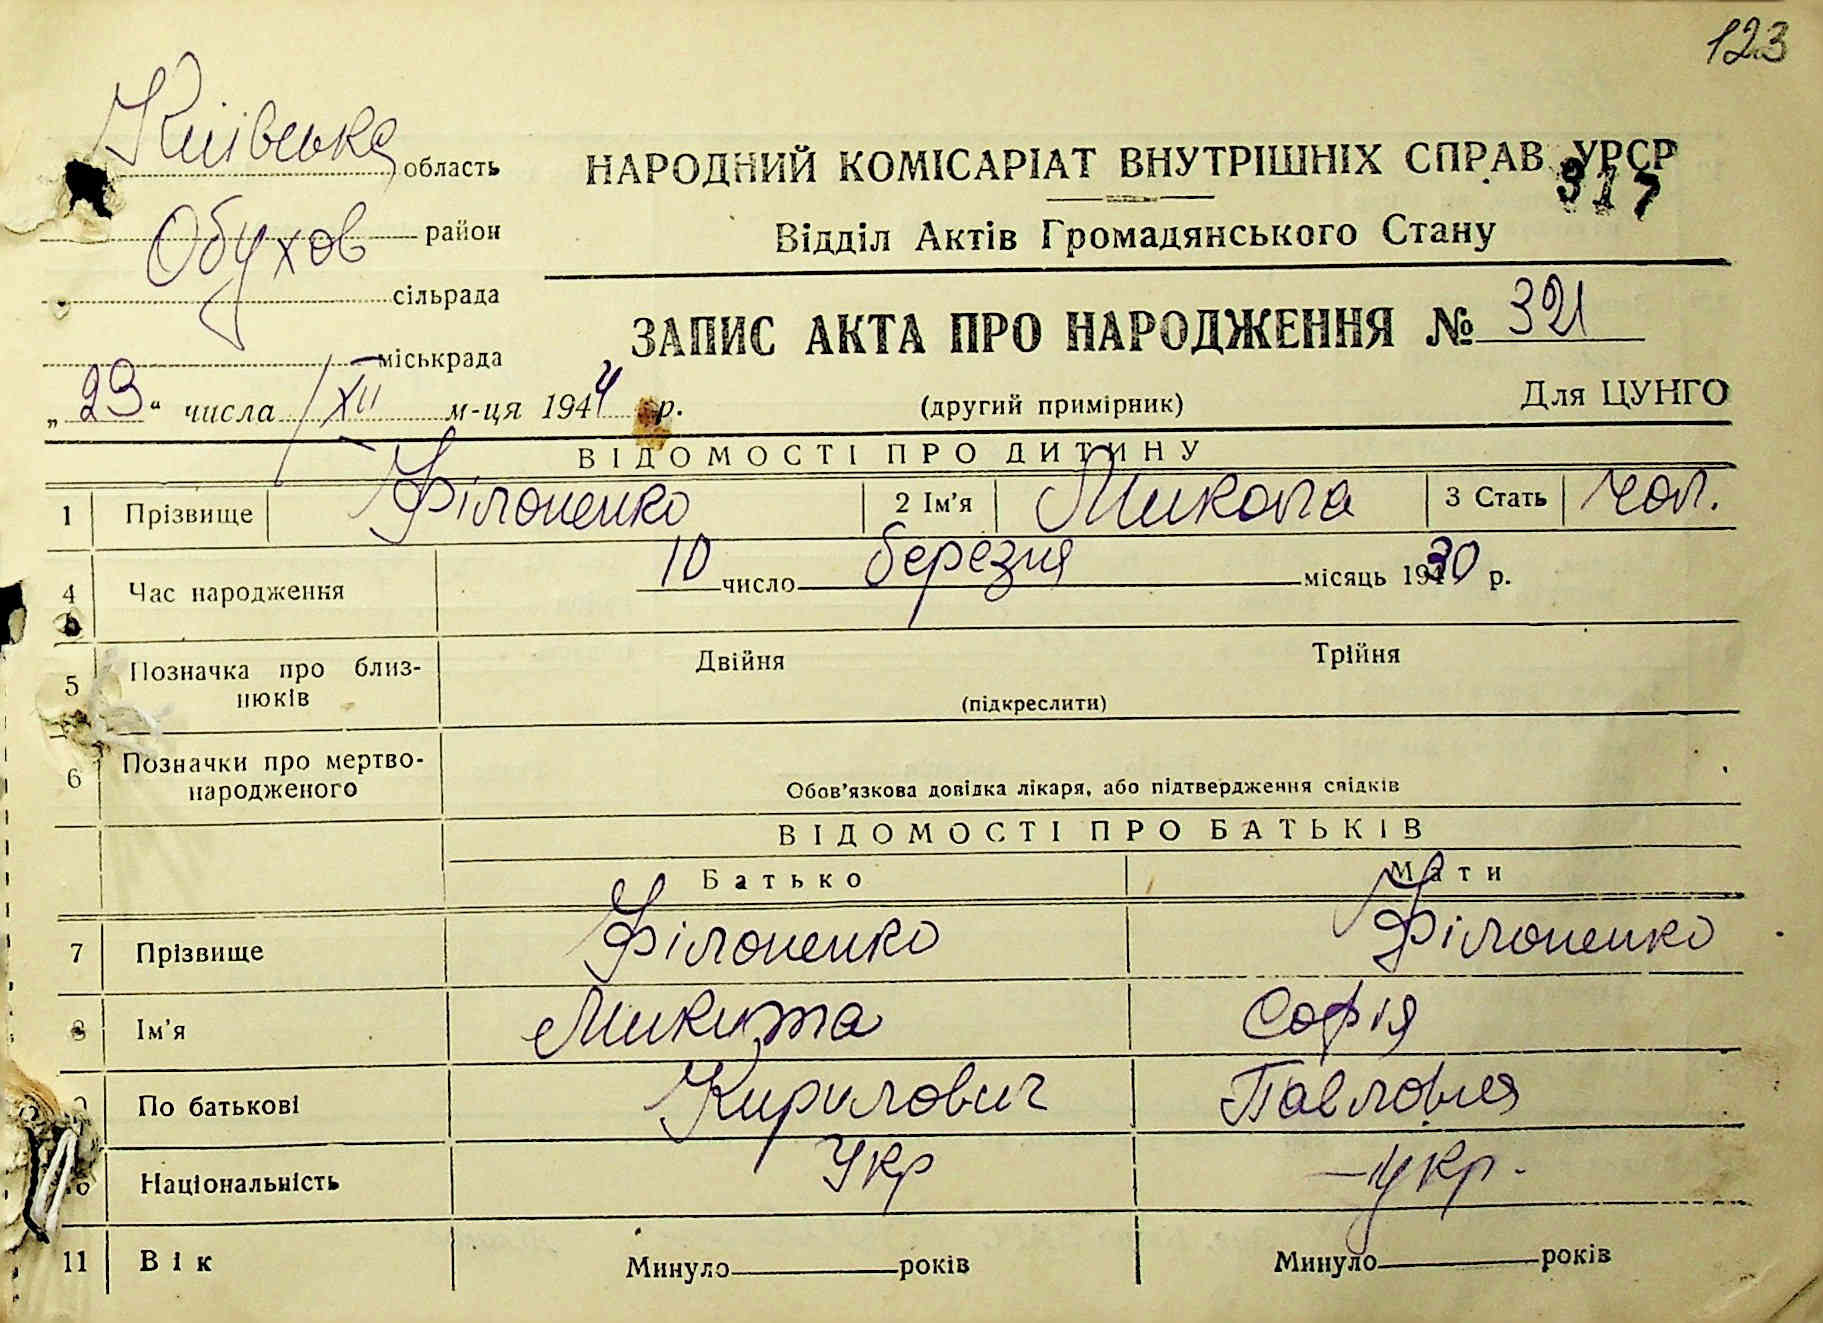 123
Київська область
НАРОДНИЙ КОМІСАРІАТ ВНУТРІШНІХ СПРАВ УРСР
317
Обухов район
Відділ Актів Громадянського Стану
сільрада
ЗАПИС АКТА ПРО НАРОДЖЕННЯ № 321
міськрада
„ 23 “ числа XII м-ця 1944 р.
(другий примірник)
Для ЦУНГО
ВІДОМОСТІ ПРО ДИТИНУ
1 Прізвище Філоненко 2 Ім’я Микола 3 Стать чол.
4 Час народження 10 число березня місяць 1930 р.
5 Позначка про близ-
нюків
Двійня Трійня
(підкреслити)
6 Позначки про мертво-
народженого
Обов’язкова довідка лікаря, або підтвердження свідків
ВІДОМОСТІ ПРО БАТЬКІВ
Батько Мати
7 Прізвище Філоненко Філоненко
8 Ім’я Микита Софія
9 По батькові Кирилович Павловня
10 Національність Укр укр.
11 Вік Минуло років Минуло років